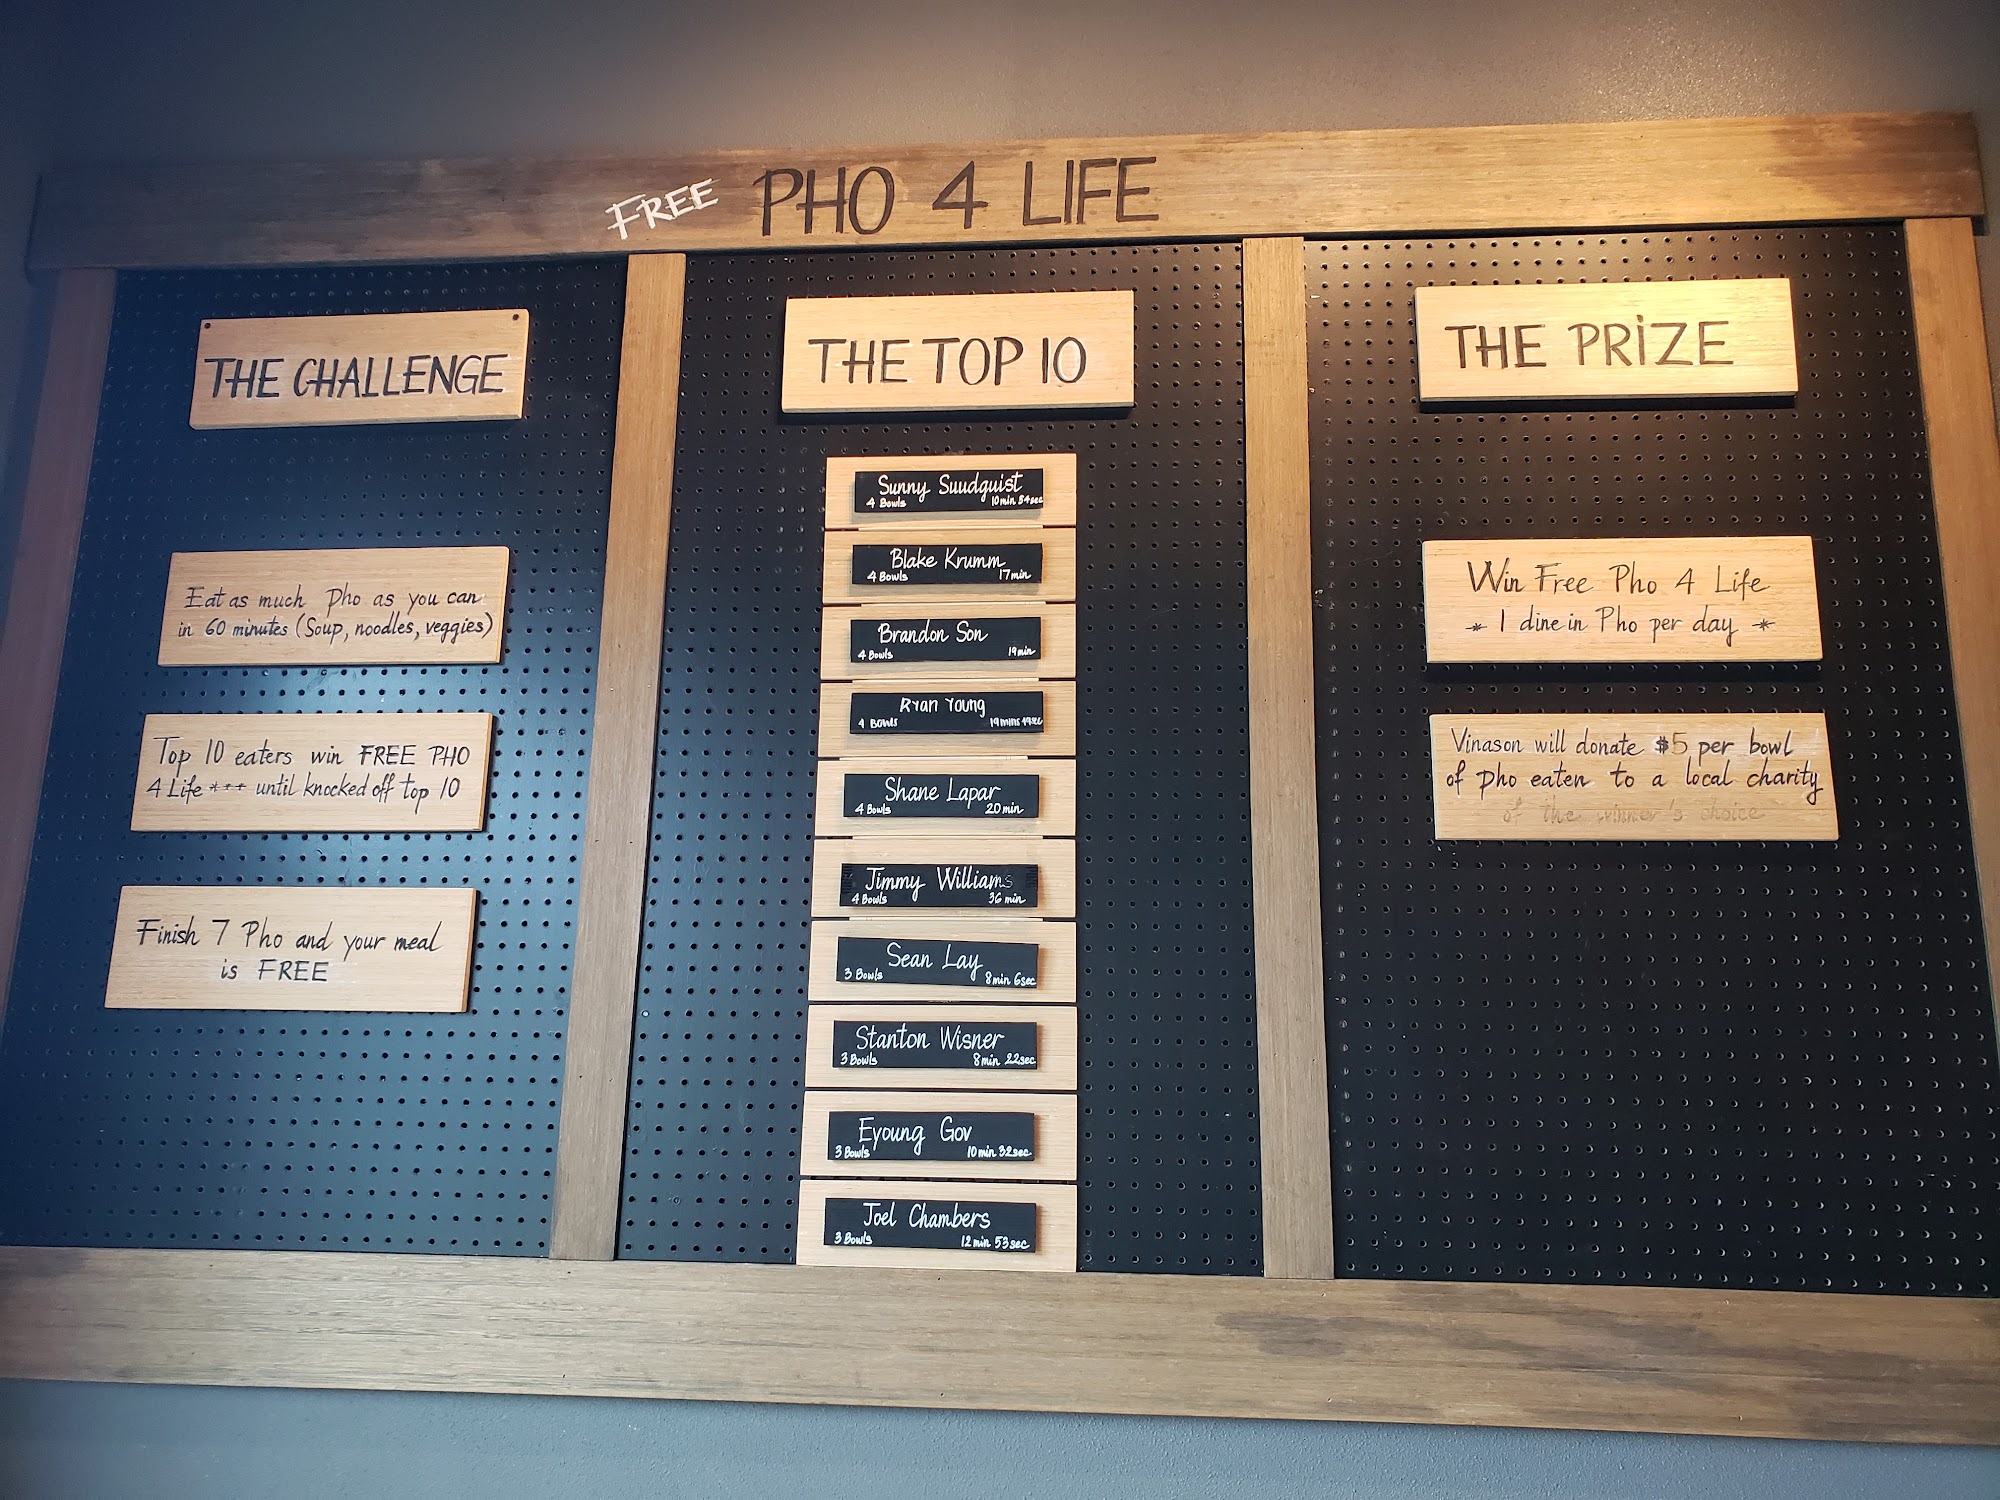 FREE PHO 4 LIFE
THE CHALLENGE
Eat as much Pho as you can
in 60 minutes (Soup, noodles, veggies)
Top 10 eaters win FREE PHO
4 Life *** until knocked off top 10
Finish 7 Pho and your meal
is FREE
THE TOP 10
Sunny Suudquist
4 Bowls 10min 34sec
Blake Krumm
4 Bowls 17min
Brandon Son
4 Bowls 19min
Ryan Young
4 Bowls 19mins 49sec
Shane Lapar
4 Bowls 20min
Jimmy Williams
4 Bowls 36 min
Sean Lay
3 Bowls 8min 6sec
Stanton Wisner
3 Bowls 8min 22sec
Eyoung Gov
3 Bowls 10min 32sec
Joel Chambers
3 Bowls 12min 53sec
THE PRIZE
Win Free Pho 4 Life
* 1 dine in Pho per day *
Vinason will donate $5 per bowl
of pho eaten to a local charity
of the winner's choice